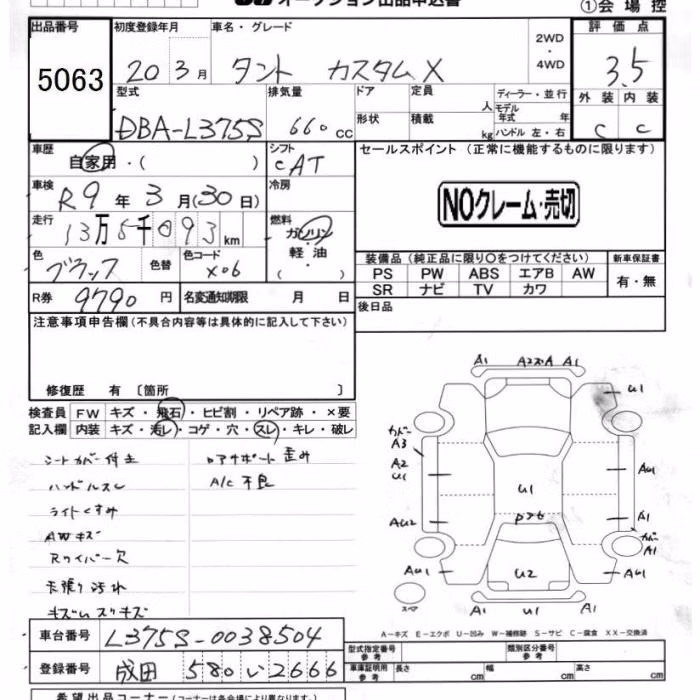 オークション出品申込書
①会場控
出品番号 5063
初度登録年月 20 3月
車名・グレード タント カスタムX
2WD・4WD
評価点 3.5
型式 DBA-L375S
排気量 660cc
ドア
定員 人
ディーラー・並行
モデル年式 年
形状
積載 kg
ハンドル 左・右
外装 内装
C C
車歴 自家用・( )
シフト CAT
セールスポイント (正常に機能するものに限ります)
NOクレーム・売切
車検 R9年3月(30日)
冷房
走行 13万5千093km
燃料 ガソリン・軽油・( )
色 ブラック
色替
色コード X06
装備品 (純正品に限り○をつけてください)
新車保証書
PS PW ABS エアB AW
SR ナビ TV カワ
有・無
R券 9790円
名変通知期限 月 日
後日品
注意事項申告欄(不具合内容等は具体的に記入して下さい)
修復歴 有 〔箇所 〕
検査員記入欄
FW キズ・飛石・ヒビ割・リペア跡・×要
内装 キズ・汚レ・コゲ・穴・スレ・キレ・破レ
シートカバー付き
ロアサポート歪み
ハンドルスレ
A/C 不良
ライトくすみ
AWキズ
Rワイパー欠
天張り汚れ
キズUスリキズ
A1 A2ズA A1
U1
カバーA3
A2
U1
U1
AU1
AU2
A1
カバーA1
AU1
U2
AU1
スペア
A1 U1 A1
A－キズ E－エクボ U－凹み W－補修跡 S－サビ C－腐食 XX－交換済
車台番号 L375S-0038504
型式指定番号 参考
類別区分番号 参考
登録番号 成田 580 い 2666
車庫証明用 参考 長さ cm 幅 cm 高さ cm
希望出品コーナー(コーナーは各会場により異なります。)